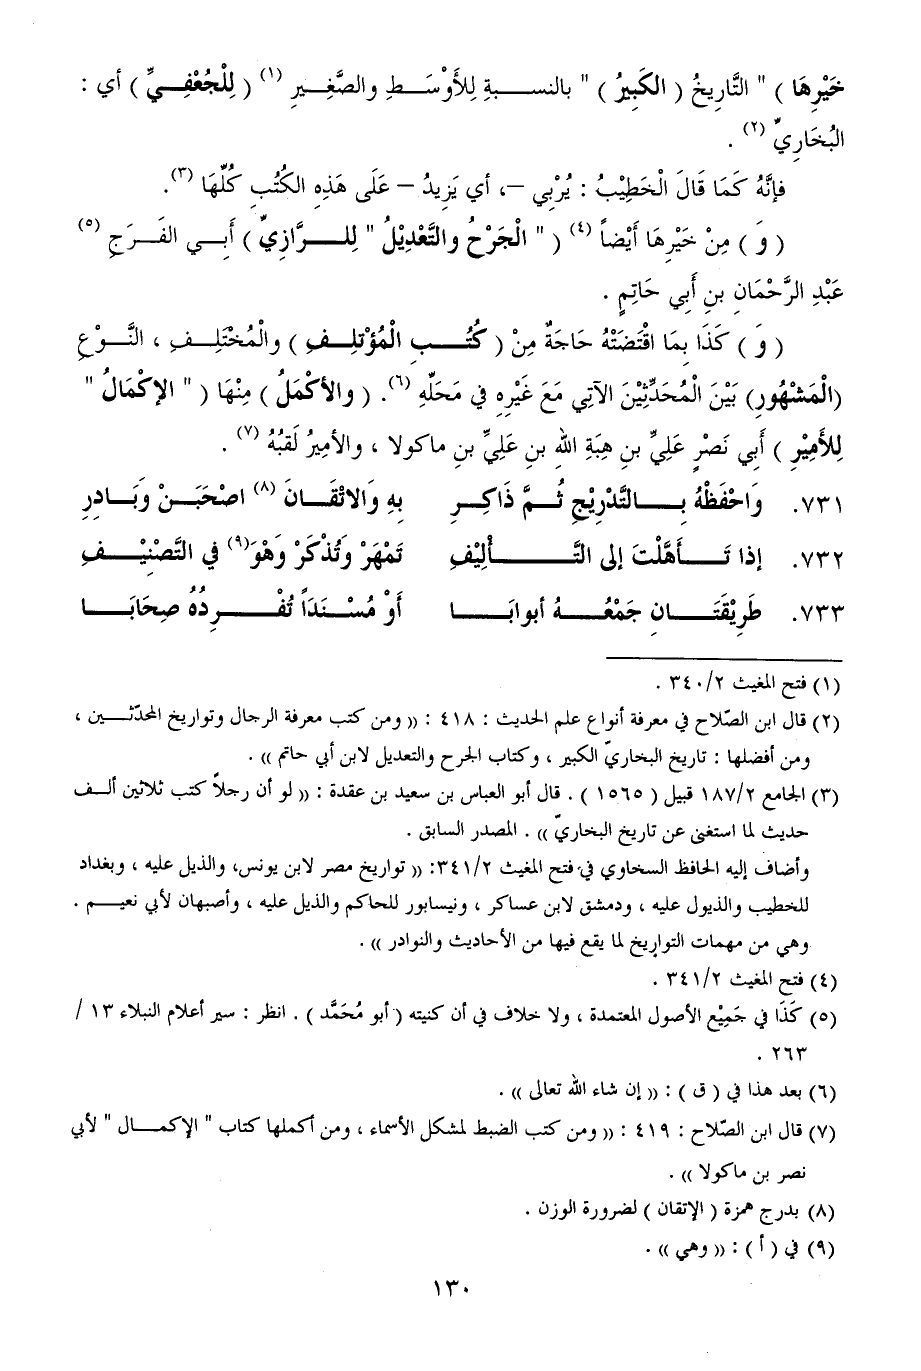 خَيْرِهَا ) " التَّارِيخُ ( الكَبِيرُ ) " بالنسبةِ لِلأَوْسَطِ والصَّغِيرِ (١) ( لِلْجُعْفِيِّ ) أي :
البُخَارِيِّ (٢) .
فإنَّهُ كَمَا قَالَ الْخَطِيْبُ : يُرْبِي –، أي يَزِيدُ – عَلَى هَذِهِ الكُتُبِ كُلِّهَا (٣).
( وَ ) مِنْ خَيْرِهَا أَيْضاً (٤) ( " الْجَرْحُ والتَّعْدِيْلُ " لِلرَّازِيِّ ) أَبِي الفَرَجِ (٥)
عَبْدِ الرَّحْمَانِ بنِ أَبِي حَاتِمٍ .
( وَ ) كَذَا بِمَا اقْتَضَتْهُ حَاجَةٌ مِنْ ( كُتُبِ الْمُؤْتِلِفِ ) والْمُخْتَلِفِ ، النَّوْعِ
(الْمَشْهُورِ) بَيْنَ الْمُحَدِّثِيْنَ الآتِي مَعَ غَيْرِهِ فِي مَحَلِّهِ (٦). ( والأكْمَلُ ) مِنْهَا ( " الإكْمَالُ "
لِلأَمِيْرِ ) أَبِي نَصْرٍ عَلِيِّ بنِ هِبَةِ اللهِ بنِ عَلِيِّ بنِ ماكولا ، والأمِيْرُ لَقَبُهُ (٧) .
٧٣١. وَاحْفَظْهُ بِالتَّدْرِيْجِ ثُمَّ ذَاكِرِ بِهِ وَالاتْقَانَ (٨) اصْحَبَنْ وَبَادِرِ
٧٣٢. إذا تَأَهَّلْتَ إلى التَّأْلِيْفِ تَمْهَرْ وَتُذْكَرْ وَهْوَ (٩) في التَّصْنِيْفِ
٧٣٣. طَرِيْقَتَانِ جَمْعُهُ أبوابَا أَوْ مُسْنَداً تُفْرِدُهُ صِحَابَا
(١) فتح المغيث ٣٤٠/٢ .
(٢) قال ابن الصّلاح في معرفة أنواع علم الحديث : ٤١٨ : (( ومن كتب معرفة الرجال وتواريخ المحدّثين ،
ومن أفضلها : تاريخ البخاريّ الكبير ، وكتاب الجرح والتعديل لابن أبي حاتم )) .
(٣) الجامع ١٨٧/٢ قبيل ( ١٥٦٥ ) . قال أبو العباس بن سعيد بن عقدة : (( لو أن رجلاً كتب ثلاثين ألف
حديث لما استغنى عن تاريخ البخاريّ )) . المصدر السابق .
وأضاف إليه الحافظ السخاوي في فتح المغيث ٣٤١/٢: (( تواريخ مصر لابن يونس، والذيل عليه ، وبغداد
للخطيب والذيول عليه ، ودمشق لابن عساكر ، ونيسابور للحاكم والذيل عليه ، وأصبهان لأبي نعيم .
وهي من مهمات التواريخ لما يقع فيها من الأحاديث والنوادر )) .
(٤) فتح المغيث ٣٤١/٢ .
(٥) كَذَا في جَمِيْع الأصول المعتمدة ، ولا خلاف في أن كنيته ( أبو مُحَمَّد ) . انظر : سير أعلام النبلاء ١٣ /
٢٦٣ .
(٦) بعد هذا في ( ق ) : (( إن شاء الله تعالى )) .
(٧) قال ابن الصّلاح : ٤١٩ : (( ومن كتب الضبط لمشكل الأسماء ، ومن أكملها كتاب " الإكمال " لأبي
نصر بن ماكولا )) .
(٨) بدرج همزة ( الإتقان ) لضرورة الوزن .
(٩) في ( أ ) : (( وهي )) .
١٣٠